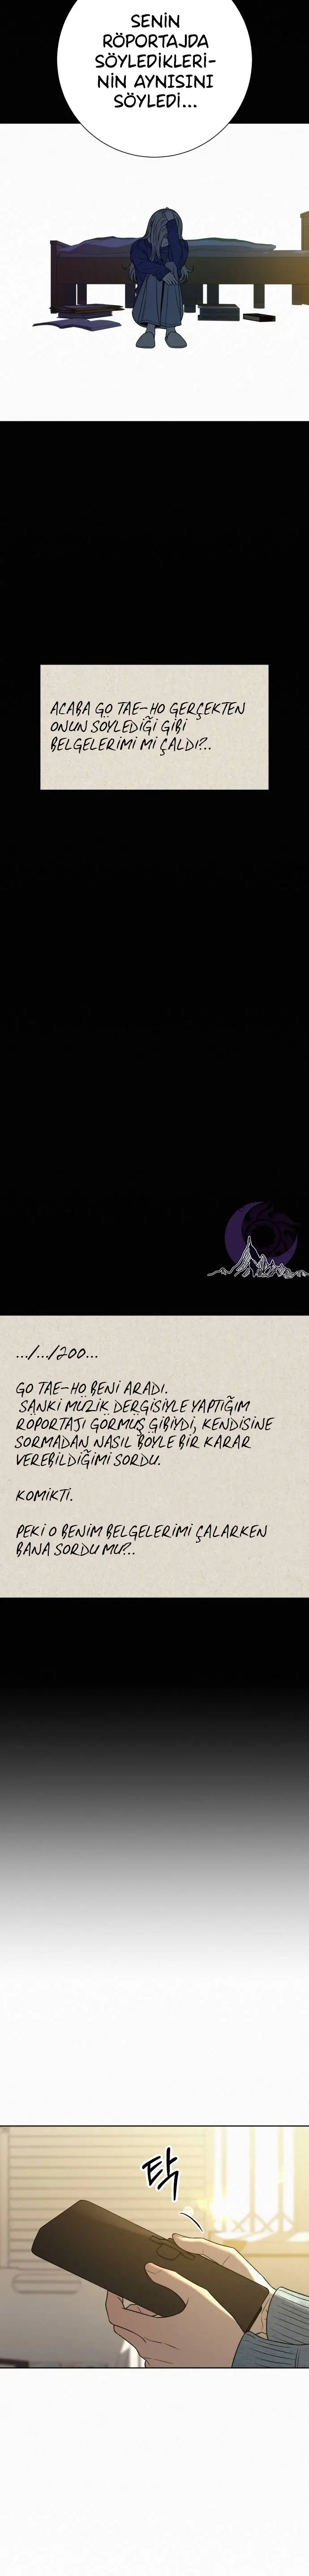 SENİN
RÖPORTAJDA
SÖYLEDİKLERİ-
NİN AYNISINI
SÖYLEDİ...
ACABA GO TAE-HO GERÇEKTEN
ONUN SÖYLEDİĞİ GİBİ
BELGELERİMİ Mİ ÇALDI?..
.../.../200...
GO TAE-HO BENİ ARADI.
SANKİ MÜZİK DERGİSİYLE YAPTIĞIM
RÖPORTAJI GÖRMÜŞ GİBİYDİ, KENDİSİNE
SORMADAN NASIL BÖYLE BİR KARAR
VEREBİLDİĞİMİ SORDU.
KOMİKTİ.
PEKİ O BENİM BELGELERİMİ ÇALARKEN
BANA SORDU MU?..
탁